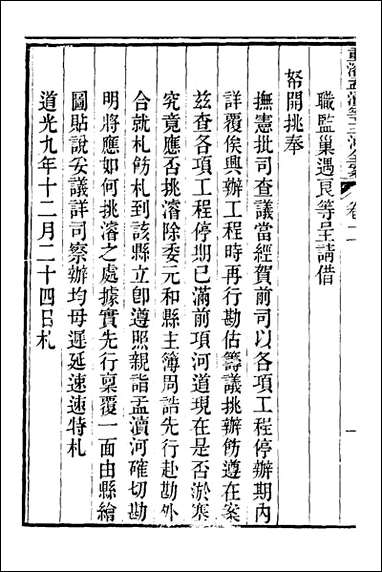 重濬孟瀆等三河全案 卷二
職監巢遇良等呈請借
帑開挑奉
撫憲批司查議當經賀前司以各項工程停辦期內
詳覆俟興辦工程時再行勘估籌議挑辦飭遵在案
茲查各項工程停期已滿前項河道現在是否淤塞
究竟應否挑濬除委元和縣主簿周誥先行赴勘外
合就札飭札到該縣立卽遵照親詣孟瀆河確切勘
明將應如何挑濬之處據實先行稟覆一面由縣繪
圖貼說妥議詳司察辦均毋遲延速速特札
道光九年十二月二十四日札